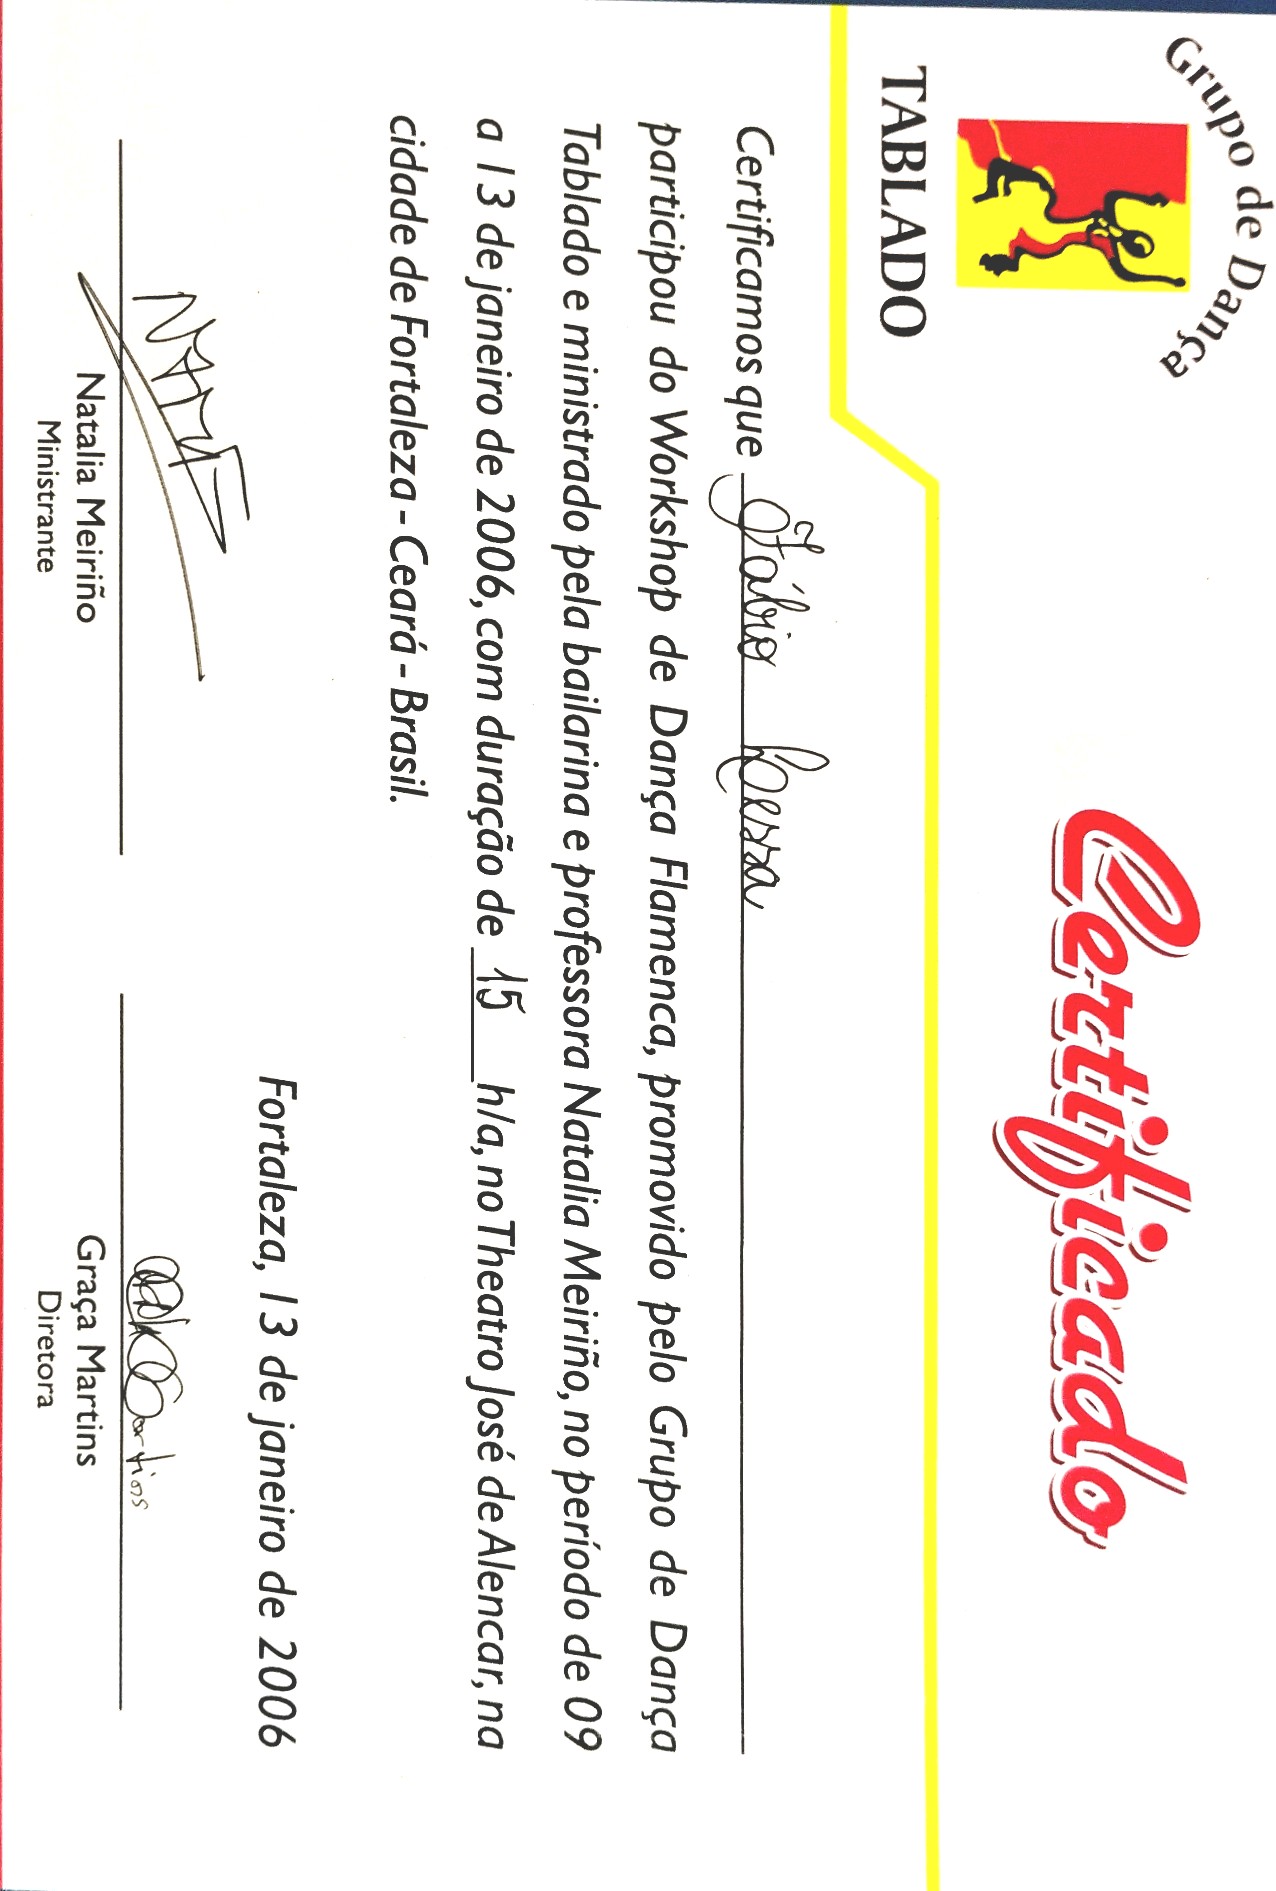 Grupo de Dança
TABLADO
Certificado
Certificamos que Fábio Lessa
participou do Workshop de Dança Flamenca, promovido pelo Grupo de Dança
Tablado e ministrado pela bailarina e professora Natalia Meiriño, no período de 09
a 13 de janeiro de 2006, com duração de 15 h/a, no Theatro José de Alencar, na
cidade de Fortaleza - Ceará - Brasil.
Fortaleza, 13 de janeiro de 2006
Natalia Meiriño
Ministrante
Martins
Graça Martins
Diretora